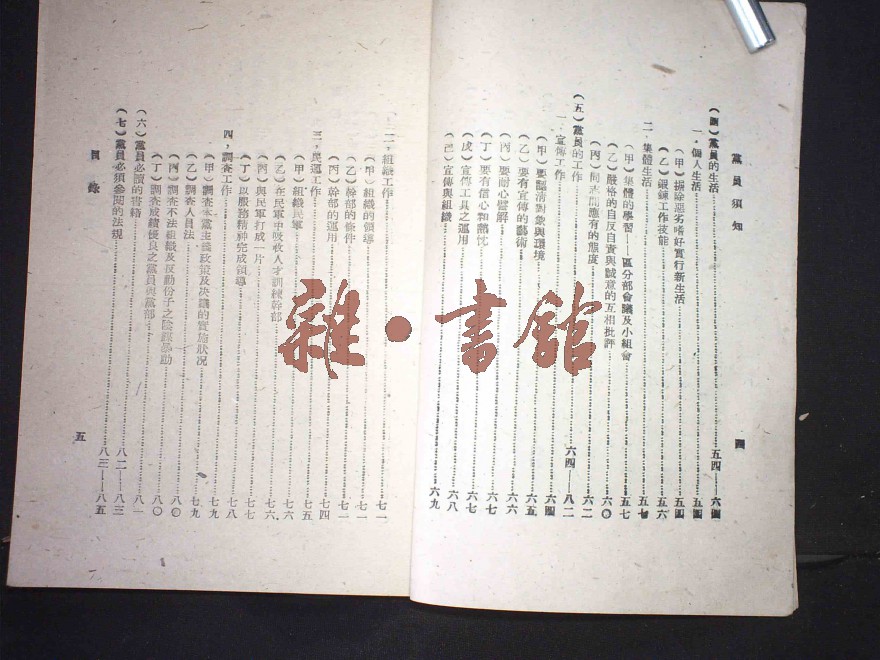 黨員須知
四
(四)黨員的生活……五四——六四
一、個人生活……五四
(甲)摒除惡劣嗜好實行新生活……五四
(乙)鍛鍊工作技能……五六
二、集體生活……五七
(甲)集體的學習——區分部會議及小組會……五七
(乙)嚴格的自反自責與誠意的互相批評……六〇
(丙)同志間應有的態度……六二
(五)黨員的工作……六四——八二
一、宣傳工作……六四
(甲)要認清對象與環境……六五
(乙)要有宣傳的藝術……六六
(丙)要耐心譬解……六六
(丁)要有信心和熱忱……六七
(戊)宣傳工具之運用……六八
(己)宣傳與組織……六九
二、組織工作……七一
(甲)組織的領導……七一
(乙)幹部的條件……七一
(丙)幹部的運用……七四
三、民運工作……七五
(甲)組織民軍……七六
(乙)在民軍中吸收人才訓練幹部……七六
(丙)與民軍打成一片……七七
(丁)以服務精神完成領導……七八
四、調查工作……七九
(甲)調查本黨主義政策及決議的實施狀況……七九
(乙)調查人員法……七九
(丙)調查不法組織及反動份子之陰謀舉動……八〇
(丁)調查成績優良之黨員與黨部……八〇
(六)黨員必讀的書籍……八一
(七)黨員必須參閱的法規……八二——八三
目錄……八三——八五
五
雜·書館